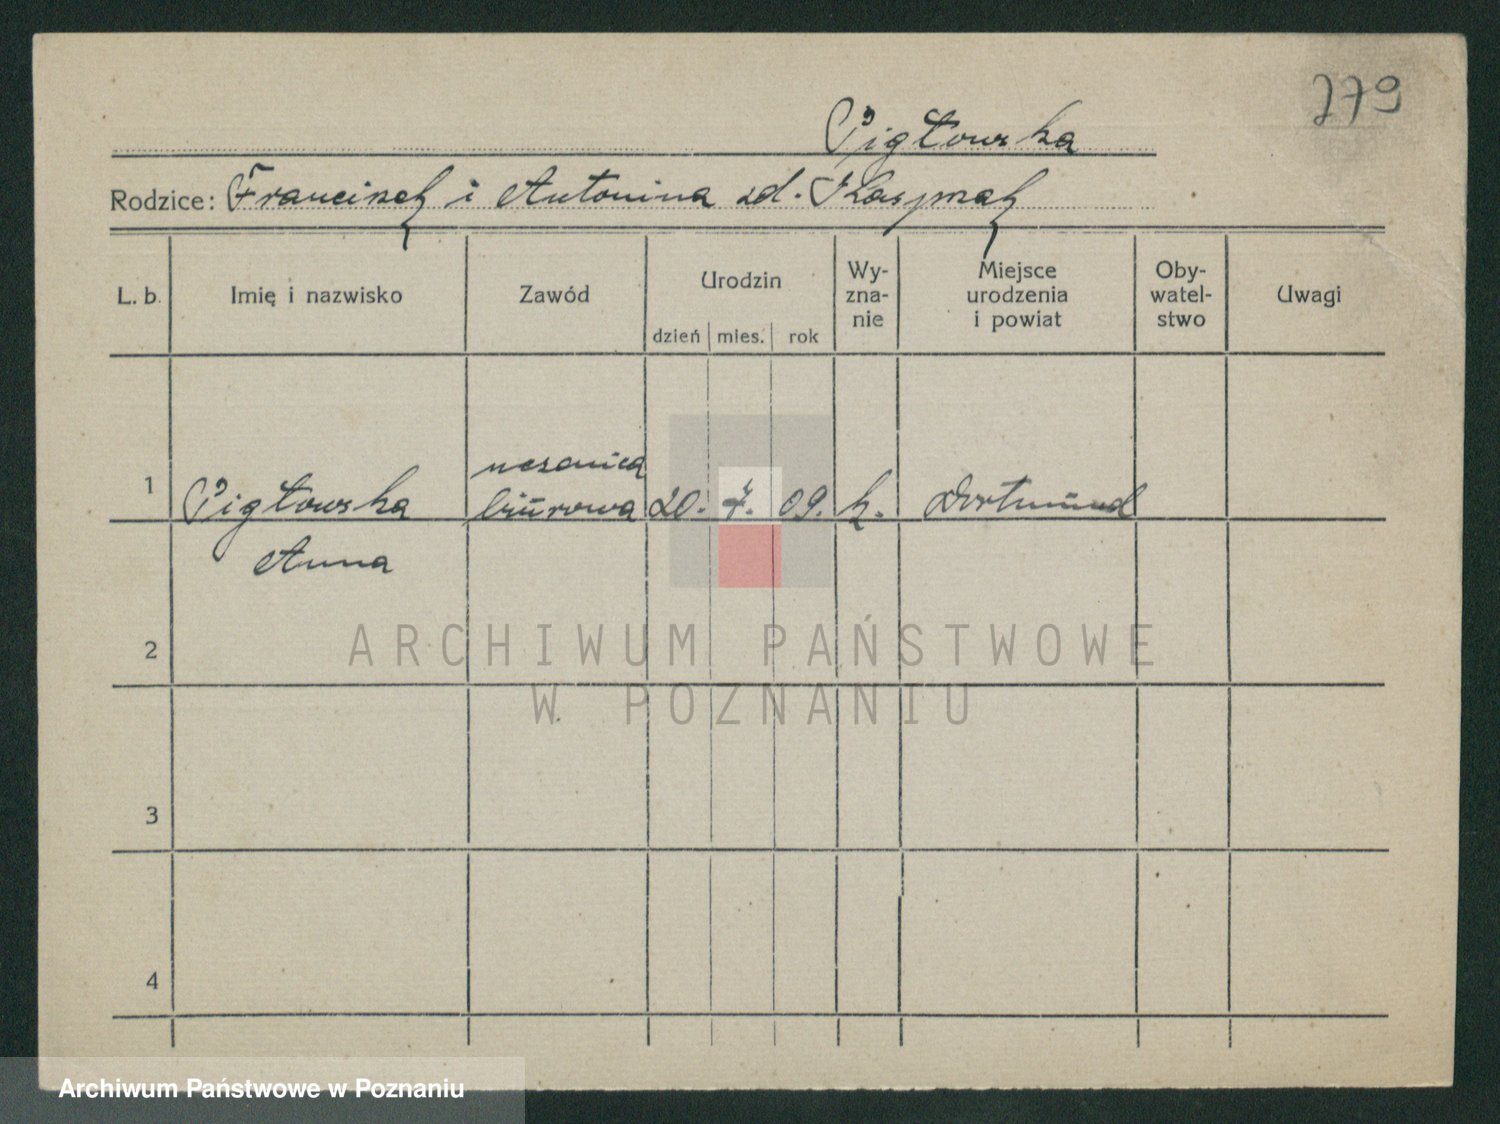 279
Pigłowska
Rodzice: Franciszek i Antonina zd. Kasprzak
L. b. Imię i nazwisko Zawód Urodzin dzień mies. rok Wy-zna-nie Miejsce urodzenia i powiat Oby-watel-stwo Uwagi
1 Pigłowska uczenica biurowa 20. 7. 09. k. Dortmund
Anna
2
3
4
ARCHIWUM PAŃSTWOWE
W POZNANIU
Archiwum Państwowe w Poznaniu